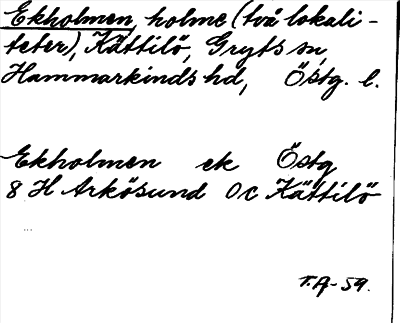 Ekholmen, holme (två lokali-
teter), Kättilö, Gryts sn,
Hammarkinds hd, Östg. l.
Ekholmen ek Östg
8 H Arkösund Oc Kättilö
T.A-59.